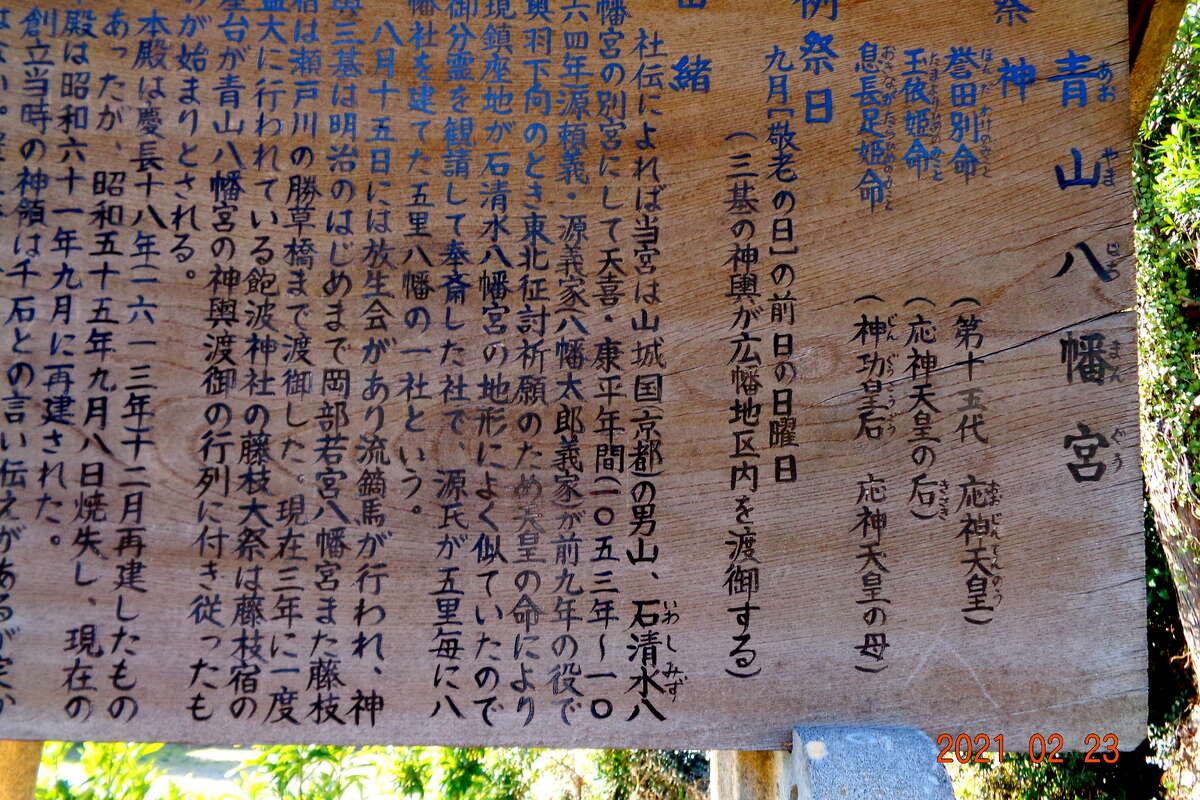 青山八幡宮
祭神
誉田別命 (第十五代 応神天皇)
玉依姫命 (応神天皇の后)
息長足姫命 (神功皇后 応神天皇の母)
例祭日
九月[敬老の日]の前日の日曜日
(三基の神輿が広幡地区内を渡御する)
由緒
社伝によれば当宮は山城国(京都)の男山、石清水八
幡宮の別宮にして天喜・康平年間(一〇五三年~一〇
六四年源頼義・源義家(八幡太郎義家)が前九年の役で
奥羽下向のとき東北征討祈願のため天皇の命により
現鎮座地が石清水八幡宮の地形によく似ていたので
御分霊を観請して奉斎した社で、源氏が五里毎に八
幡社を建てた五里八幡の一社という。
八月十五日には放生会があり流鏑馬が行われ、神
輿三基は明治のはじめまで岡部若宮八幡宮また藤枝
宿は瀬戸川の勝草橋まで渡御した。現在三年に一度
盛大に行われている飽波神社の藤枝大祭は藤枝宿の
屋台が青山八幡宮の神輿渡御の行列に付き従ったも
のが始まりとされる。
本殿は慶長十八年(一六一三年)十二月再建したもの
あったが、昭和五十五年九月八日焼失し、現在の
殿は昭和六十一年九月に再建された。
創立当時の神領は千石との言い伝えがあるが定か
2021 02 23